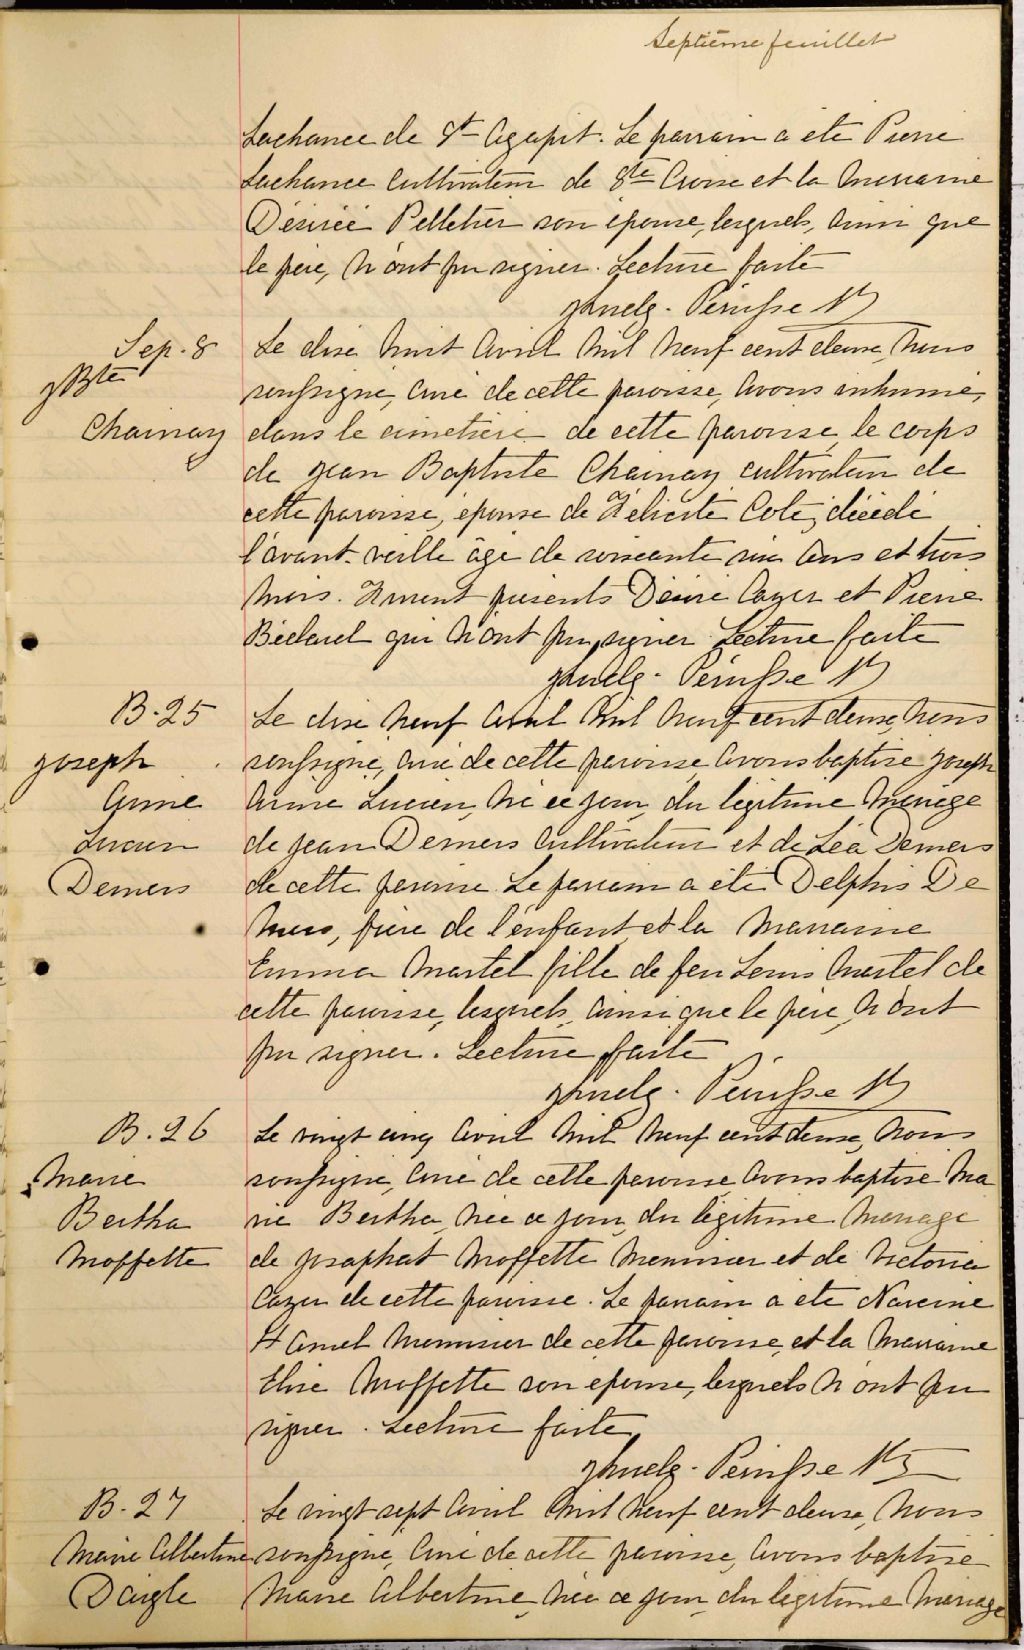 Septième feuillet
Lachance de St Agapit. Le parrain a été Pierre
Lachance cultivateur de Ste Croix et la marraine
Désirée Pelletier son épouse, lesquels, ainsi que
le père, n'ont pu signer. Lecture faite
Pérusse
Sep. 8
Le dix huit avril mil neuf cent deux, nous
JBte
soussigné, curé de cette paroisse, avons inhumé,
Chainay
dans le cimetière de cette paroisse, le corps
de Jean Baptiste Chainay cultivateur de
cette paroisse, époux de Félicité Coté, décédé
l'avant-veille âgé de soixante six ans et trois
mois. Furent présents Désiré Cayer et Pierre
Bédard qui n'ont pu signer. Lecture faite
Pérusse
B. 25
Le dix neuf avril mil neuf cent deux, nous
Joseph
soussigné, curé de cette paroisse, avons baptisé Joseph
Anne
Anne Lucien, né ce jour, du légitime mariage
Lucien
de Jean Demers cultivateur et de Léa Demers
Demers
de cette paroisse. Le parrain a été Delphis De
mers, frère de l'enfant, et la marraine
Emma Martel fille de feu Louis Martel de
cette paroisse, lesquels, ainsi que le père, n'ont
pu signer. Lecture faite
Pérusse
B. 26
Le vingt cinq avril mil neuf cent deux, nous
Marie
soussigné, curé de cette paroisse, avons baptisé Ma
Bertha
rie Bertha, née ce jour, du légitime mariage
Moffette
de Josaphat Moffette menuisier et de Victoria
Cayer de cette paroisse. Le parrain a été Narcisse
Hamel menuisier de cette paroisse, et la marraine
Elise Moffette son épouse, lesquels n'ont pu
signer. Lecture faite
Pérusse
B. 27
Le vingt sept avril mil neuf cent deux, nous
Marie Albertine
soussigné, curé de cette paroisse, avons baptisé
Daigle
Marie Albertine, née ce jour, du légitime mariage